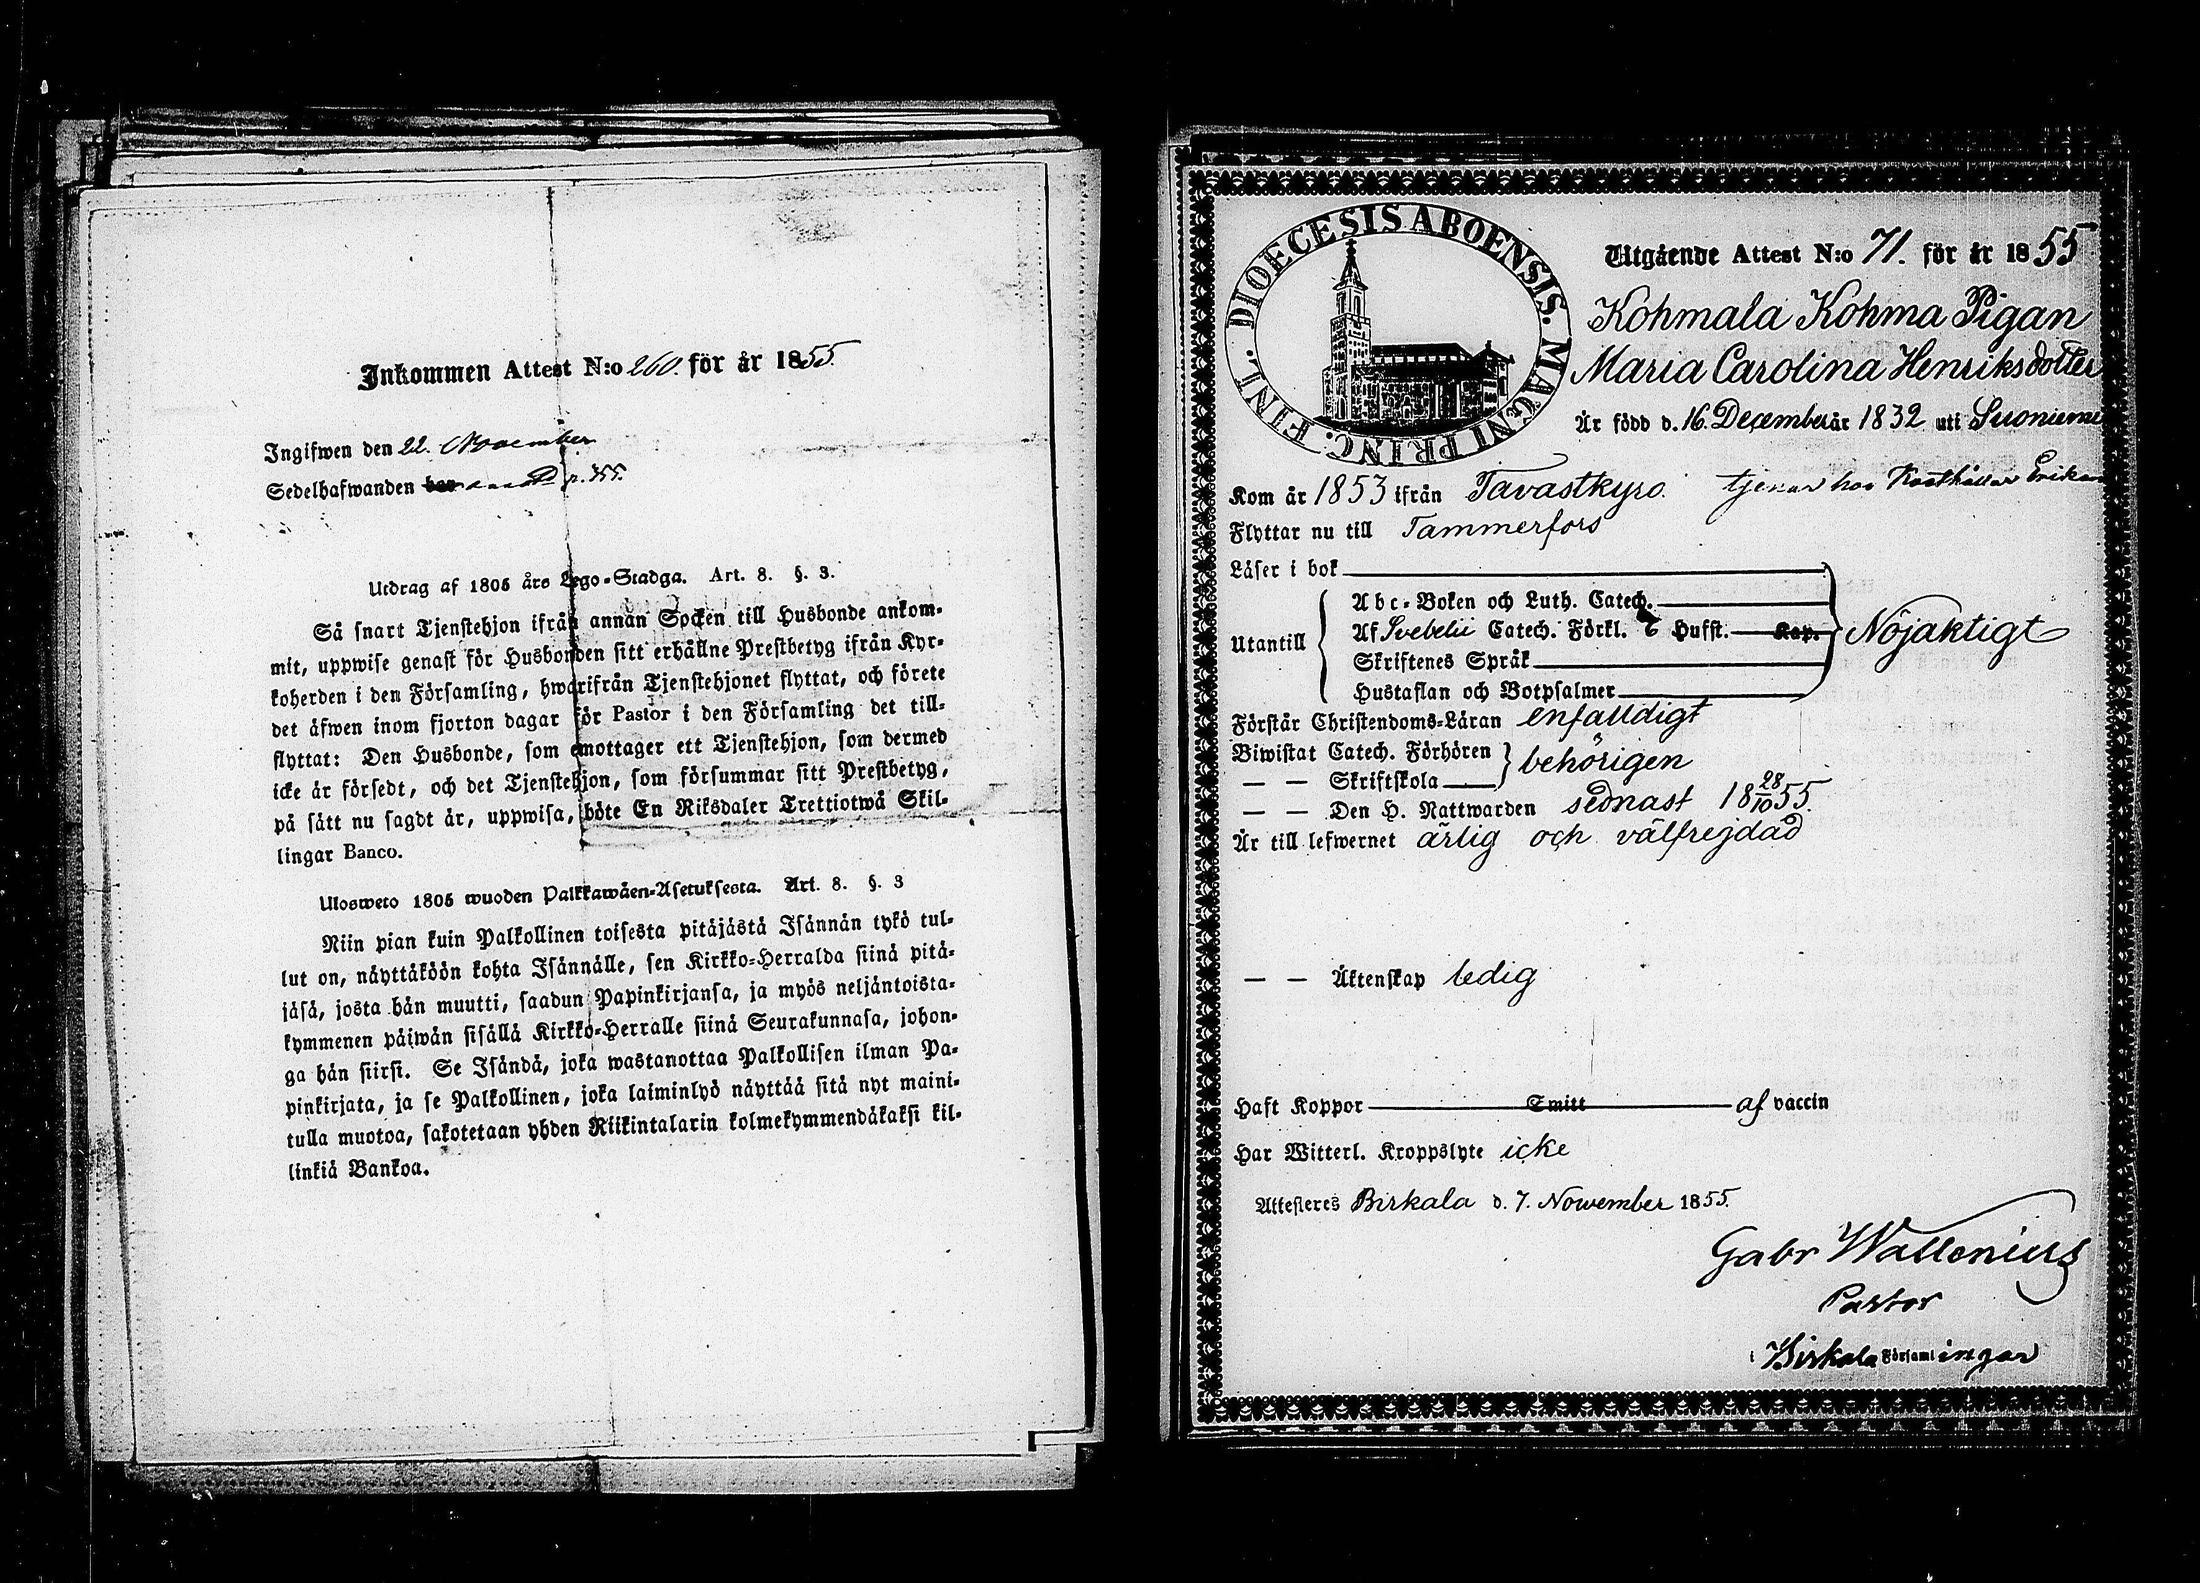 Inkommen Attest N:o 260. för år 1855.
Ingifwen den 22. November
Sedelhafwanden
Utdrag af 1805 års Lego-Stadga. Art. 8. §. 3.
Så snart Tjenstehjon ifrån annan Socken till Husbonde ankom-
mit, uppwise genast för Husbonden sitt erhållne Prestbetyg ifrån Kyr-
koherden i den Församling, hwarifrån Tjenstehjonet flyttat, och förete
det äfwen inom fjorton dagar för Pastor i den Församling det till-
flyttat: Den Husbonde, som emottager ett Tjenstehjon, som dermed
icke är försedt, och det Tjenstehjon, som försummar sitt Prestbetyg,
på sätt nu sagdt är, uppwisa, böte En Riksdaler Trettiotwå Skil-
lingar Banco.
Ulosweto 1805 wuoden Palkkawäen-Asetuksesta. Art. 8. §. 3
Niin pian kuin Palkollinen toisesta pitäjästä Isännän tykö tul-
lut on, näyttäköön kohta Isännälle, sen Kirkko-Herralda siinä pitä-
jäsä, josta hän muutti, saadun Papinkirjansa, ja myös neljäntoista-
kymmenen päiwän sisällä Kirkko-Herralle siinä Seurakunnasa, johon-
ga hän siirsi. Se Isändä, joka wastanottaa Palkollisen ilman Pa-
pinkirjata, ja se Palkollinen, joka laiminlyö näyttää sitä nyt maini-
tulla muotoa, sakotetaan yhden Riikintalarin kolmekymmendäkaksi kil-
linkiä Bankoa.
DIOECESIS ABOENSIS. MAGNI PRINC. FINL.
Utgående Attest N:o 71. för år 1855
Kohmala Kohma Pigan
Maria Carolina Henriksdotter
Är född d. 16. December år 1832 uti Suoniemi
Kom år 1853 ifrån Tavastkyro. tjenar hos Erik
Flyttar nu till Tammerfors
Läser i bok
Utantill
Abc-Boken och Luth. Catech.
Af Svebelii Catech. Förkl. & Hufst. Kap.
Skriftenes Språk
Hustaflan och Botpsalmer
Nöjaktigt
Förstår Christendoms-Läran enfaldigt
Biwistat Catech. Förhören
— — Skriftskola
behörigen
— — Den H. Nattwarden sednast 18 28/10 55.
Är till lefwernet ärlig och välfrejdad
— — Äktenskap ledig
Haft Koppor Smitt af vaccin
Har Witterl. Kroppslyte icke
Attesteres Birkala d. 7. November 1855.
Gabr Wallenius
Pastor
i Birkala Församlingar